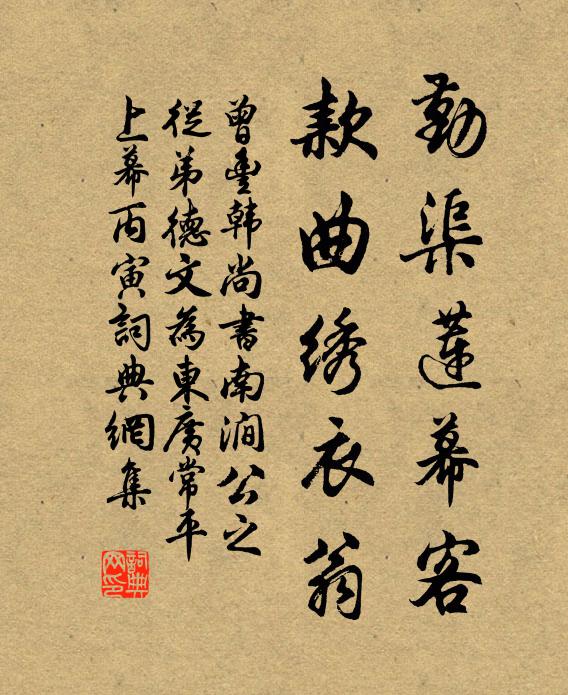 勤渠蓮幕客
款曲綉衣翁
曾豐韓尚書南澗公之
從弟德文為東廣常平
上幕丙寅詞典網集
詞典網印